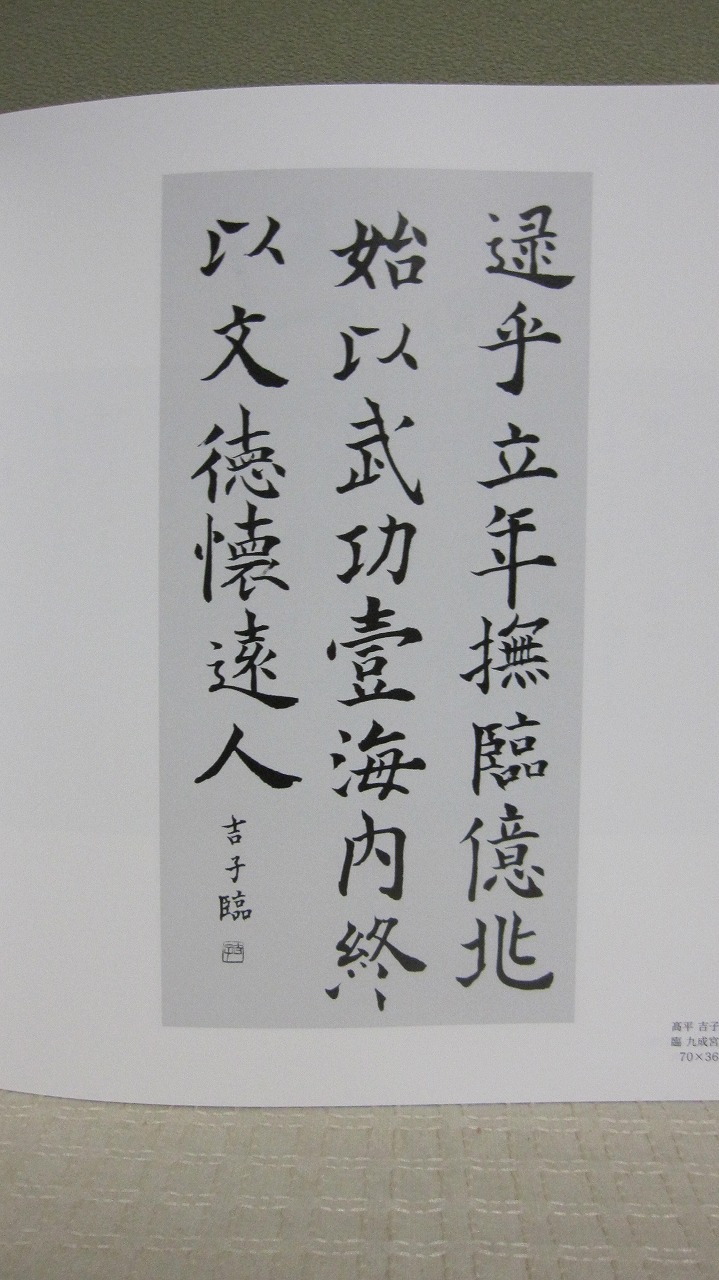 逯乎立年撫臨億兆
始以武功壹海内終
以文徳懐遠人
吉子臨
高平 吉子
臨 九成宮
70×36